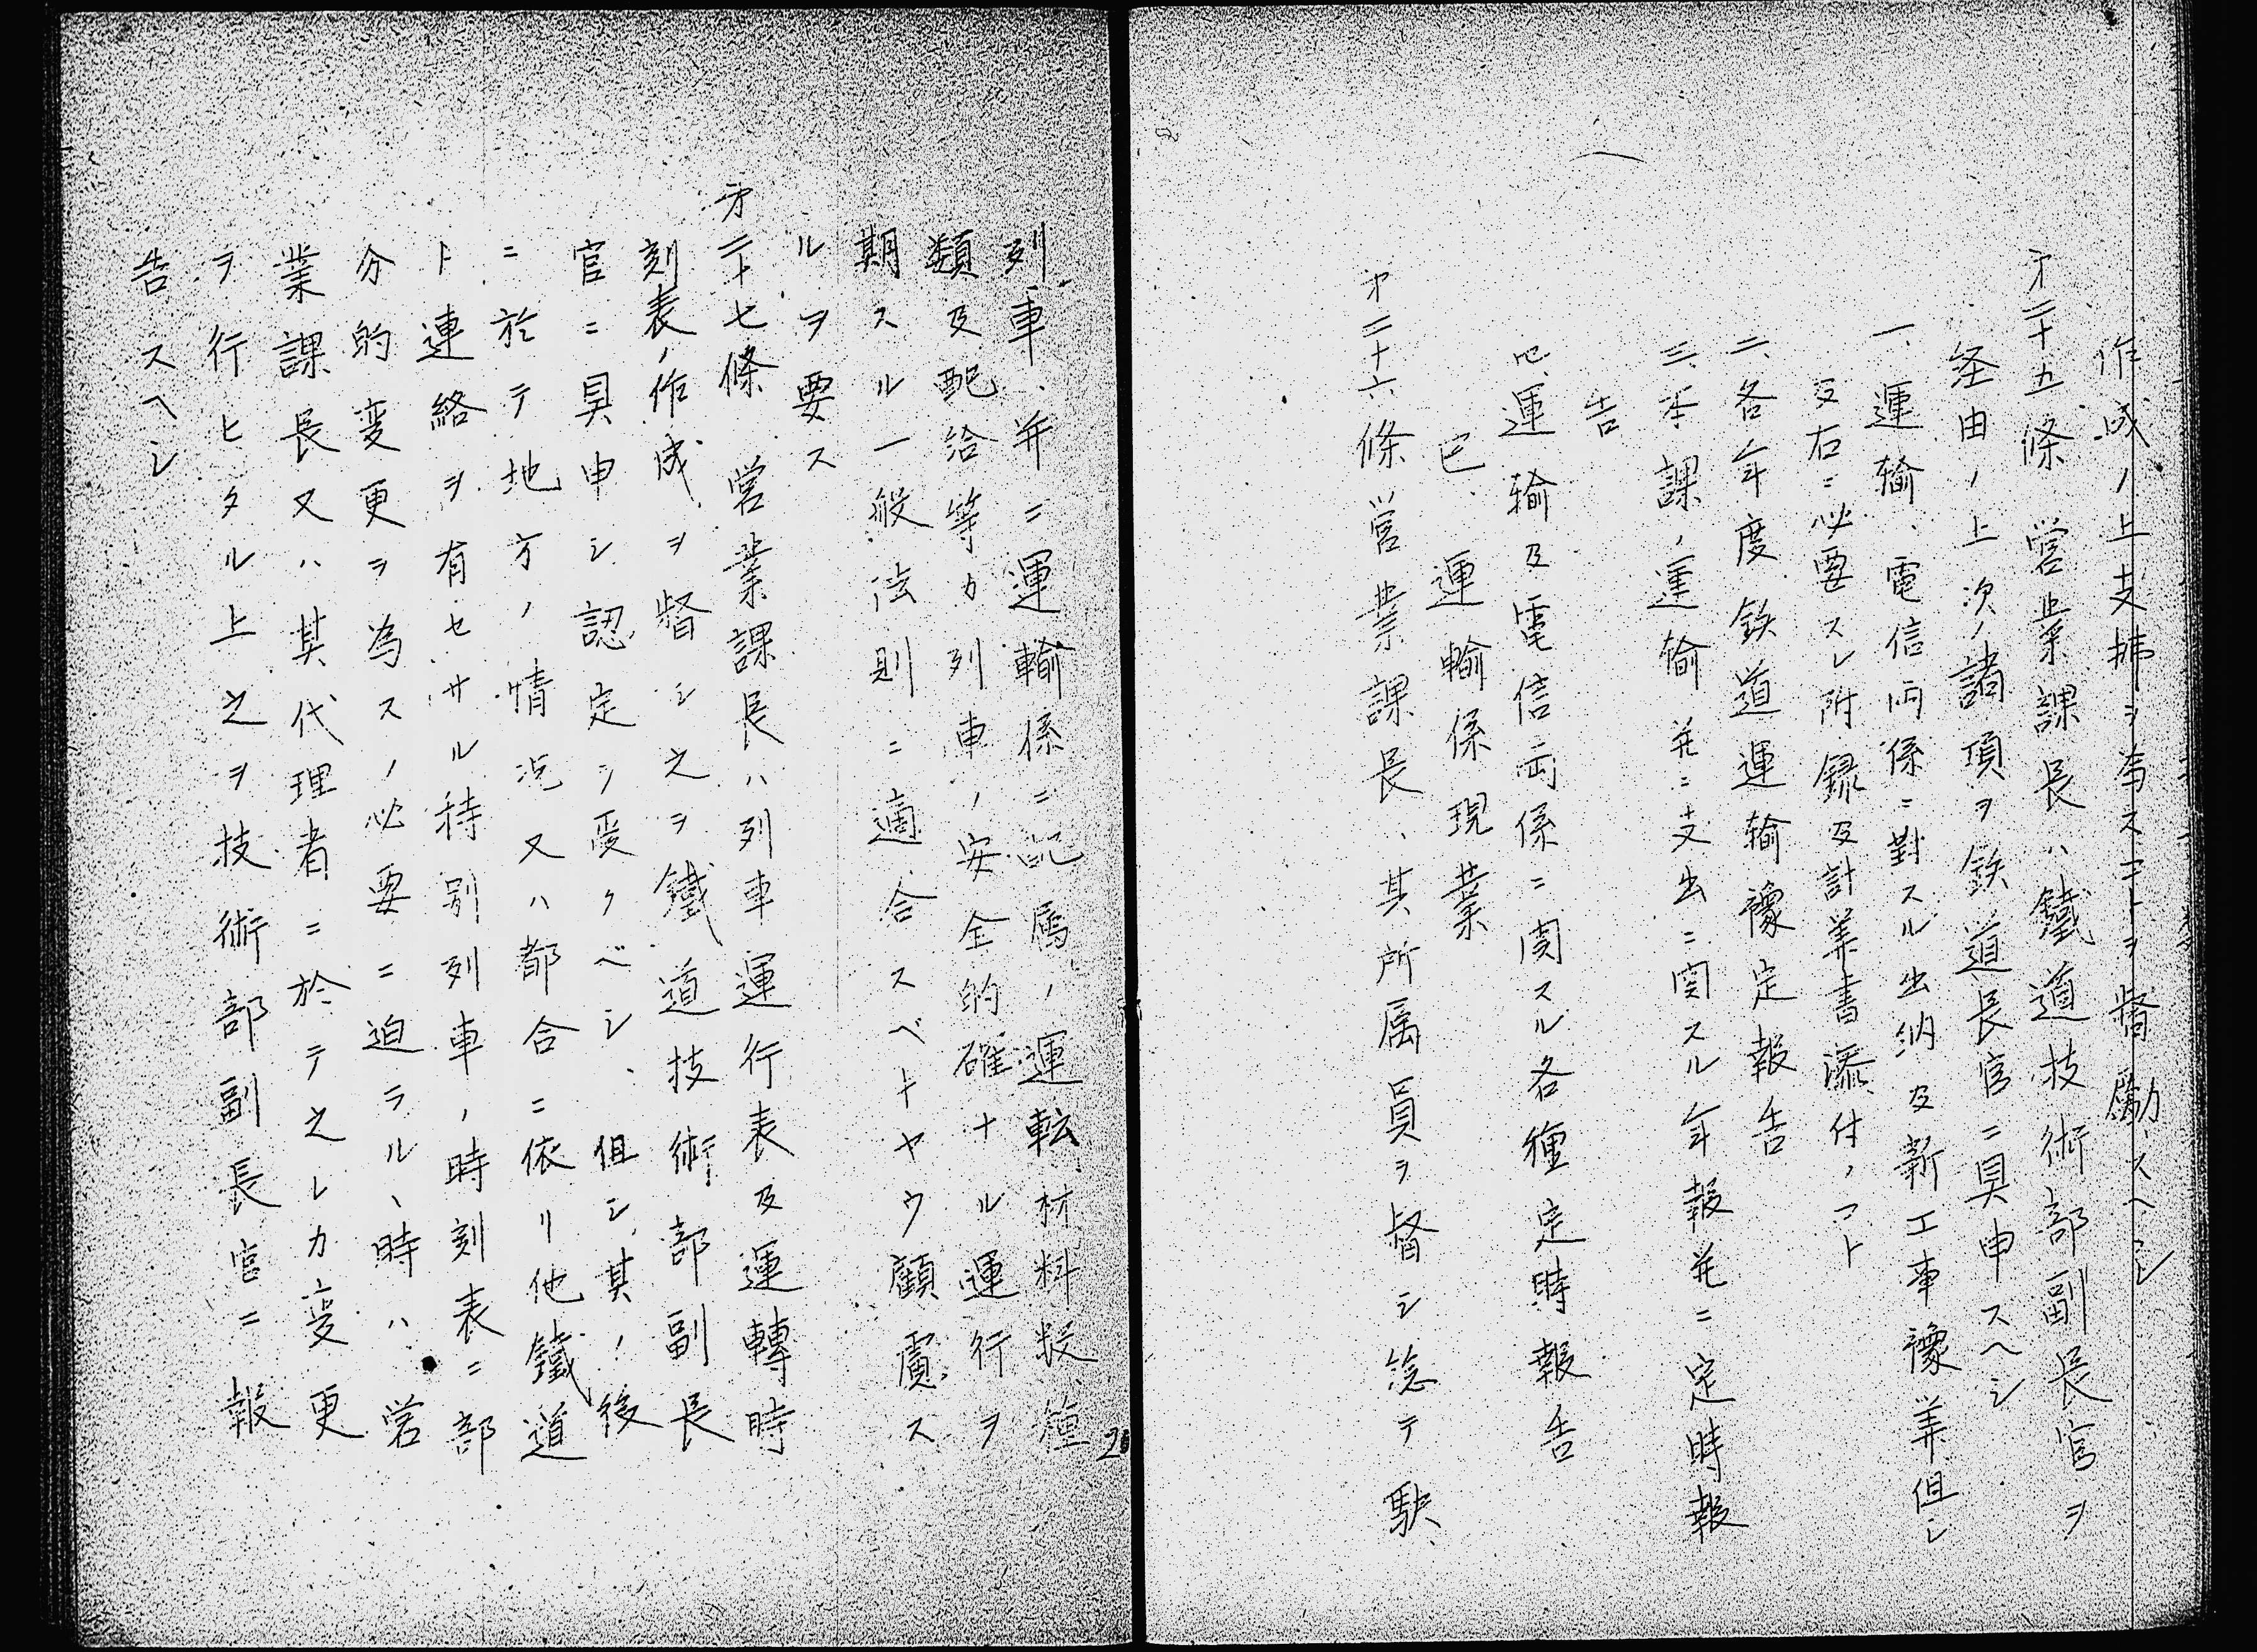 作成ノ上支拂ヲ為スコトヲ督勵スヘシ
第二十五條 営業課長ハ鐵道技術部副長官ヲ
経由ノ上次ノ諸項ヲ鉄道長官ニ具申スヘシ
一、運輸、電信両係ニ對スル出納及新工事豫算但シ
右ニ必要スレ附録及計算書添付ノコト
二、各年度鉄道運輸豫定報告
三、本課ノ運輸并ニ支出ニ関スル年報并ニ定時報
告
四、運輸及電信両係ニ関スル各種定時報告
己 運輸係現業
第二十六條 営業課長、其所属員ヲ督シ総テ駅
列車、并ニ運輸係ニ配属ノ運転材料Prescribed種
類及配給等カ列車ノ安全的確ナル運行ヲ
期スル一般法則ニ適合スベトヤウ顧慮ス
ルヲ要ス
第二十七條 営業課長ハ列車運行表及運轉時
刻表ノ作成ヲ督シ之ヲ鐵道技術部副長
官ニ具申シ認定ヲ受クベシ、但シ其ノ後
ニ於テ地方ノ情况又ハ都合ニ依リ他鐵道
ト連絡ヲ有セサル特別列車ノ時刻表ニ部
分的変更ヲ為スノ必要ニ迫ラル、時ハ営
業課長又ハ其代理者ニ於テ之レカ変更
ヲ行ヒタル上之ヲ技術部副長官ニ報
告スヘシ